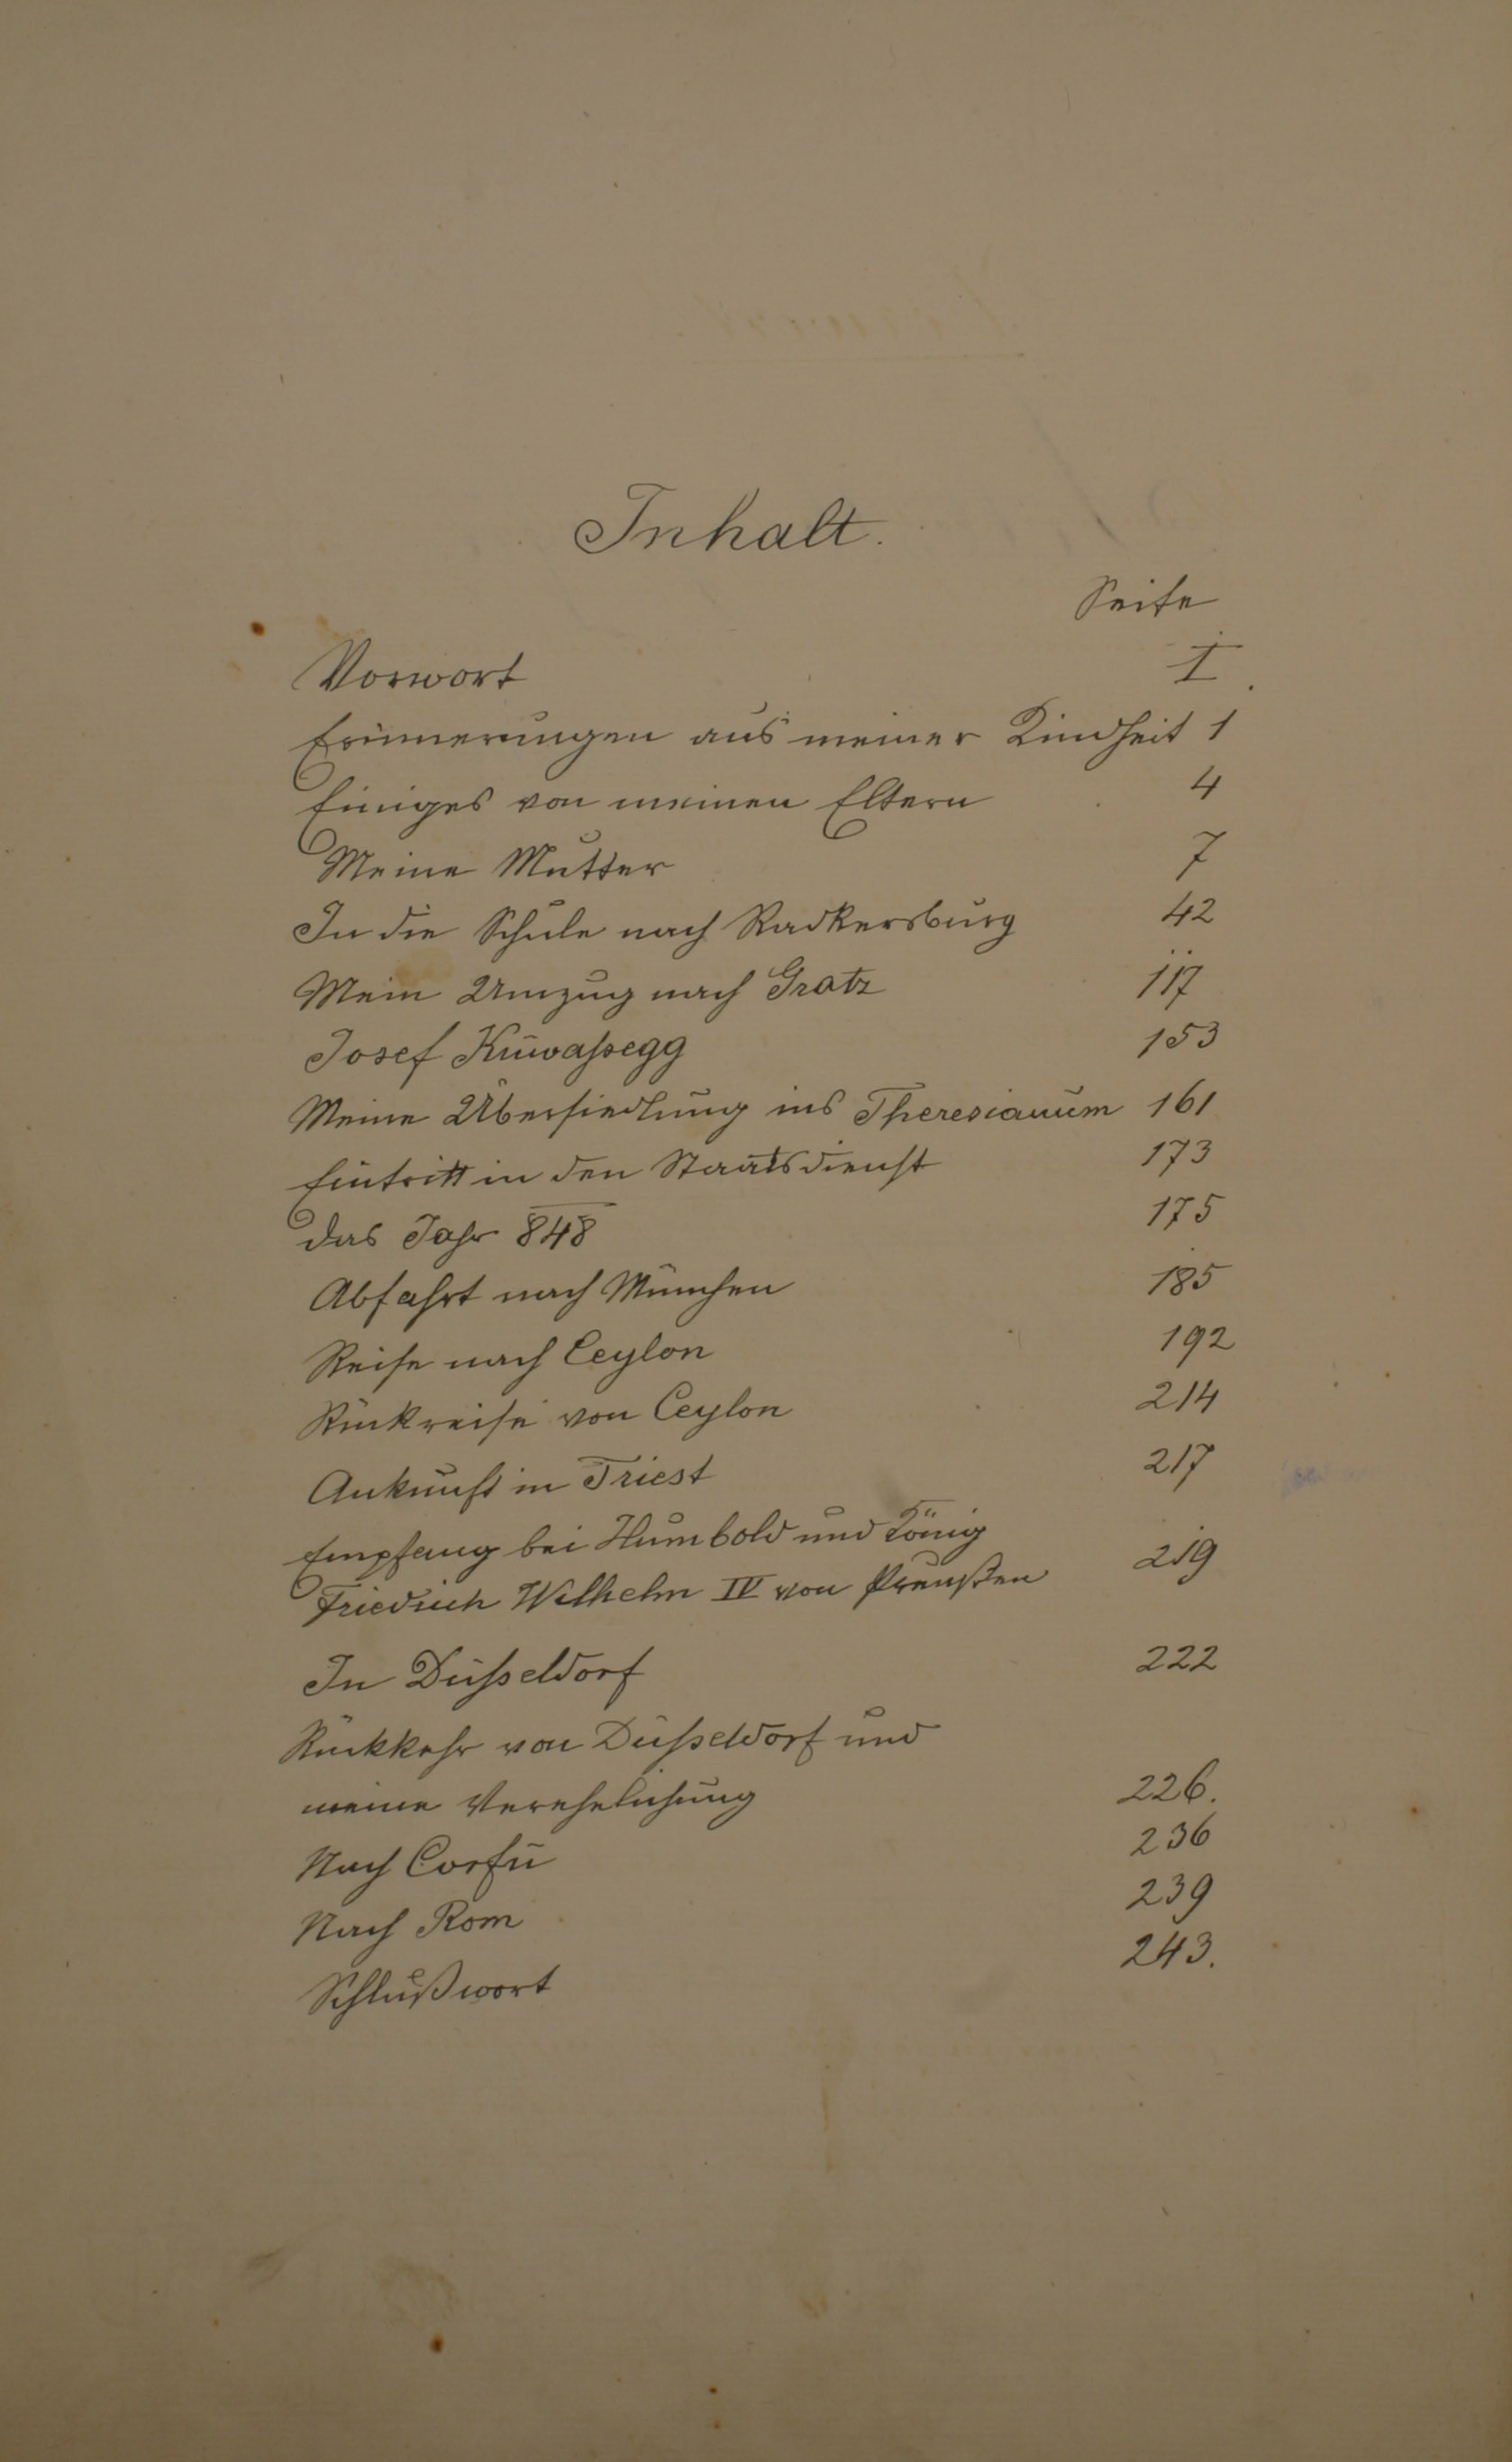 Inhalt.
Seite
Vorwort I.
Erinnerungen aus meiner Kindheit 1
Einiges von meinen Eltern 4
Meine Mutter 7
In die Schule nach Radkersburg 42
Mein Umzug nach Gratz 117
Josef Kuwaſsegg 153
Meine Übersiedlung ins Theresianum 161
Eintritt in den Staatsdienst 173
Das Jahr 848 175
Abfahrt nach München 185
Reise nach Ceylon 192
Rückreise von Ceylon 214
Ankunft in Triest 217
Empfang bei Humbold und König
Friedrich Wilhelm IV von Preußen 219
In Düſseldorf 222
Rückkehr von Düſseldorf und
meine Verehelichung 226.
Nach Corfu 236
Nach Rom 239
Schlußwort 243.